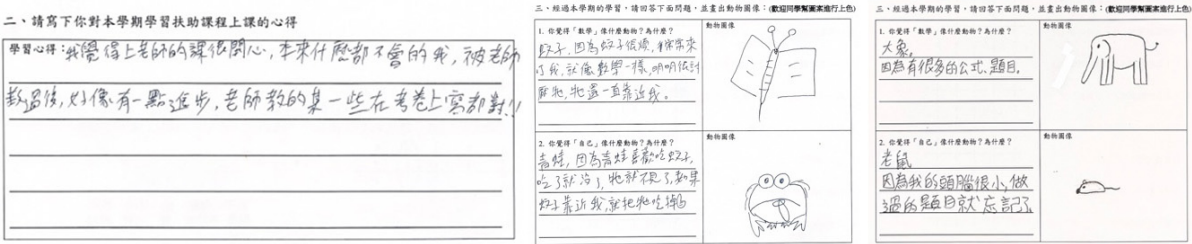 二、請寫下你對本學期學習扶助課程上課的心得
學習心得：我覺得上老師的課很開心，本來什麼都不會的我，被老師
教過後，好像有一點進步，老師教的某一些在考卷上寫都對!!
三、經過本學期的學習，請回答下面問題，並畫出動物圖像：(歡迎同學幫圖案進行上色)
1. 你覺得「數學」像什麼動物？為什麼？
動物圖像
蚊子，因為蚊子很煩，常常來
叮我，就像數學一樣，明明很討
厭牠，牠還一直靠近我。
2. 你覺得「自己」像什麼動物？為什麼？
動物圖像
青蛙，因為青蛙喜歡吃蚊子，
吃了就沒了，牠就不見了，如果
蚊子靠近我，就把牠吃掉
三、經過本學期的學習，請回答下面問題，並畫出動物圖像：(歡迎同學幫圖案進行上色)
1. 你覺得「數學」像什麼動物？為什麼？
動物圖像
大象，
因為有很多的公式、題目。
2. 你覺得「自己」像什麼動物？為什麼？
動物圖像
老鼠
因為我的頭腦很小，做
過的題目就忘記了。